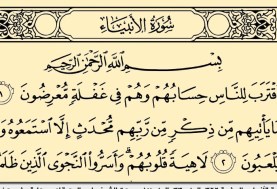 سُورَةُ الأَنْبِيَاءِ
بِسْمِ اللَّهِ الرَّحْمَٰنِ الرَّحِيمِ
قْتَرَبَ لِلنَّاسِ حِسَابُهُمْ وَهُمْ فِي غَفْلَةٍ مُّعْرِضُونَ ١
مَا يَأْتِيهِم مِّن ذِكْرٍ مِّن رَّبِّهِم مُّحْدَثٍ إِلَّا اسْتَمَعُوهُ وَ
يَلْعَبُونَ ٢ لَاهِيَةً قُلُوبُهُمْ وَأَسَرُّوا النَّجْوَى الَّذِينَ ظَلَمُ